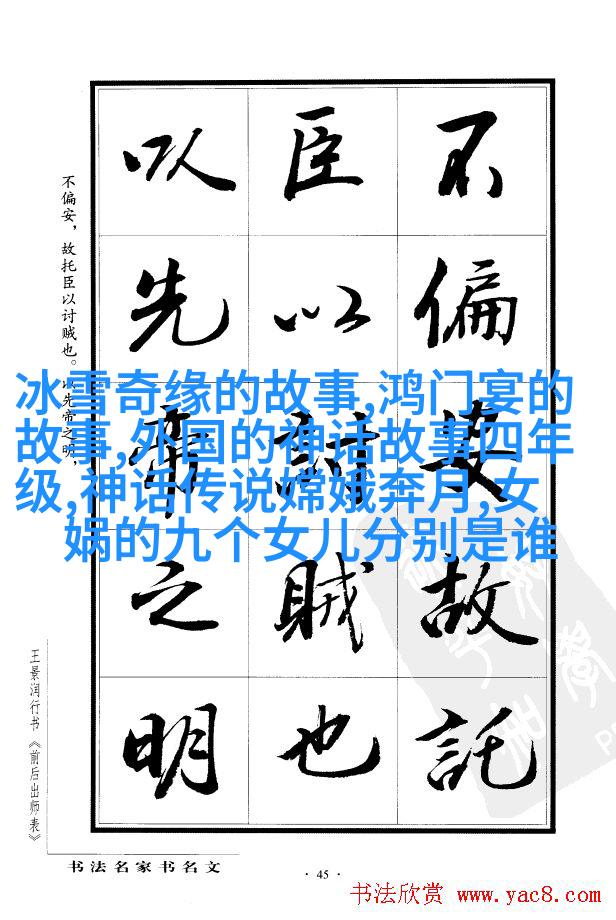 不偏安故託
臣以討賊也
以先帝之明
不偏安，故托臣以讨贼也。以先帝之明，
冰雪奇缘的故事,鸿门宴的
故事,外国的神话故事四年
级,神话传说嫦娥奔月,女
娲的九个女儿分别是谁
王景润行书《前后出师表》
书法名家书名文
·45·
书法欣赏 www.yac8.com